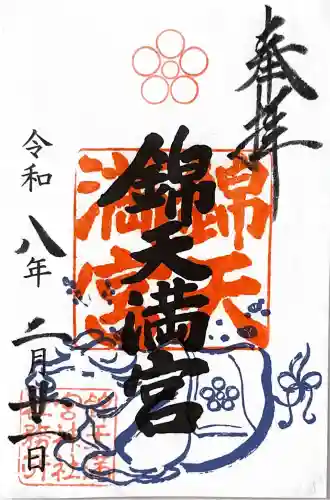 奉拝
錦天満宮
錦天
満宮
令和八年二月廿一日